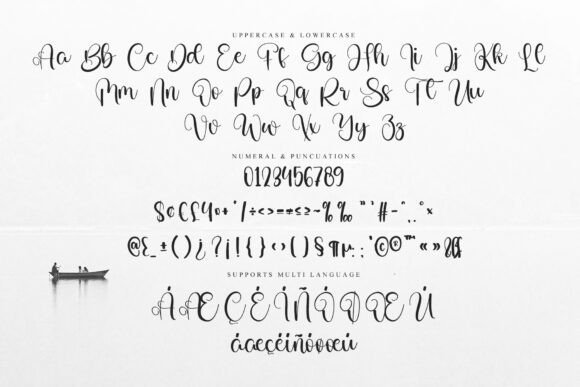 UPPERCASE & LOWERCASE
Aa Bb Cc Dd Ee Ff Gg Hh Ii Jj Kk Ll
Mm Nn Oo Pp Qq Rr Ss Tt Uu
Vv Ww Vx Yy Zz
NUMERAL & PUNCUATIONS
0123456789
$¢€£¥¤+*/÷<>=≠≤≥~%‰"'#-
@&_±()¿?¡!{}‹›()§¶µ:©®™«»
SUPPORTS MULTI LANGUAGE
ÁÆÇÉÍÑÓØŒÚ
áæçéíñóøœú